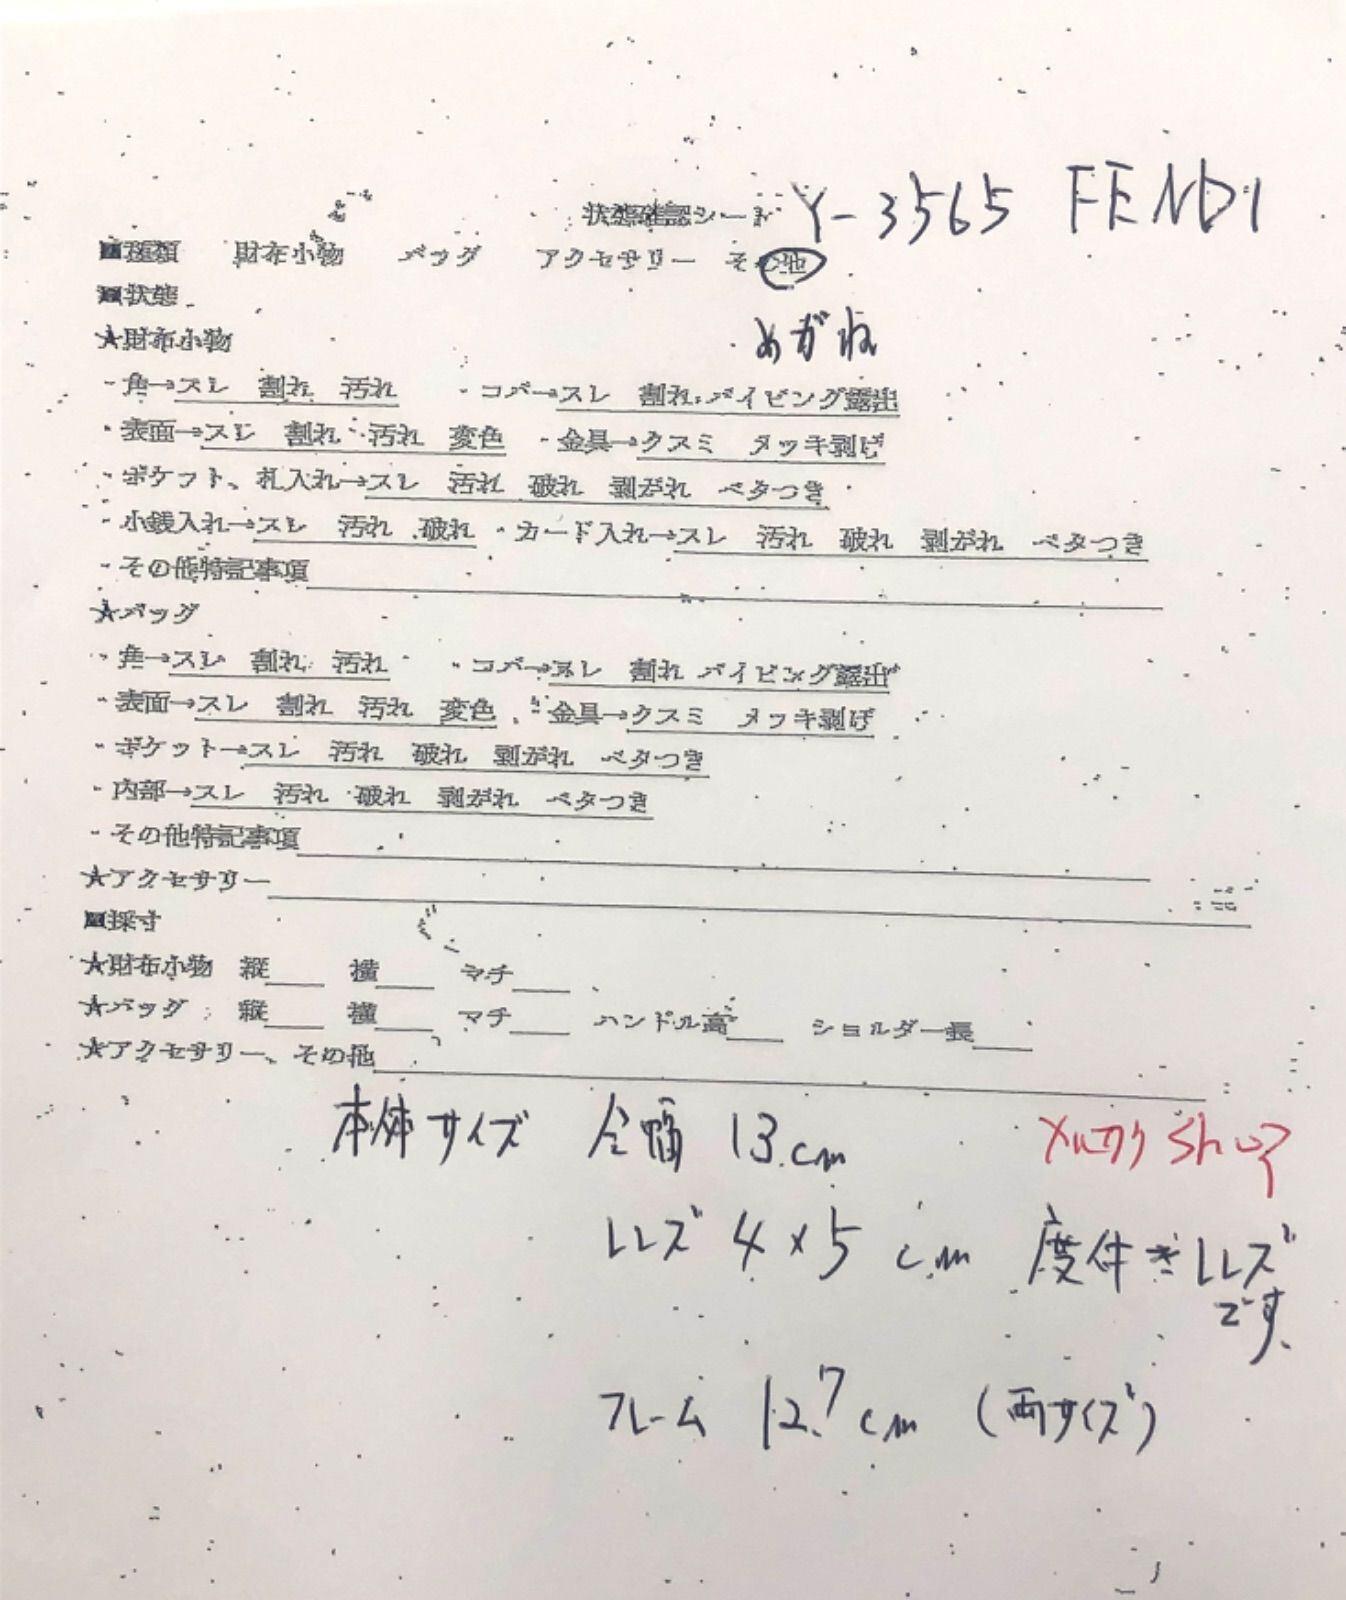 状態確認シート Y-3565 FENDI
■種類 財布小物 バッグ アクセサリー その他
■状態
めがね
★財布小物
・角→スレ 割れ 汚れ ・コバ→スレ 割れ パイピング露出
・表面→スレ 割れ 汚れ 変色 ・金具→クスミ メッキ剥げ
・ポケット、札入れ→スレ 汚れ 破れ 剥がれ ベタつき
・小銭入れ→スレ 汚れ 破れ ・カード入れ→スレ 汚れ 破れ 剥がれ ベタつき
・その他特記事項
★バッグ
・角→スレ 割れ 汚れ ・コバ→スレ 割れ パイピング露出
・表面→スレ 割れ 汚れ 変色 ・金具→クスミ メッキ剥げ
・ポケット→スレ 汚れ 破れ 剥がれ ベタつき
・内部→スレ 汚れ 破れ 剥がれ ベタつき
・その他特記事項
★アクセサリー
■採寸
★財布小物 縦 横 マチ
★バッグ 縦 横 マチ ハンドル高 ショルダー長
★アクセサリー、その他
本体サイズ 全幅 13cm メルカリ Shop
レンズ 4×5 cm 度付きレンズ
です。
フレーム 12.7cm (両サイズ)